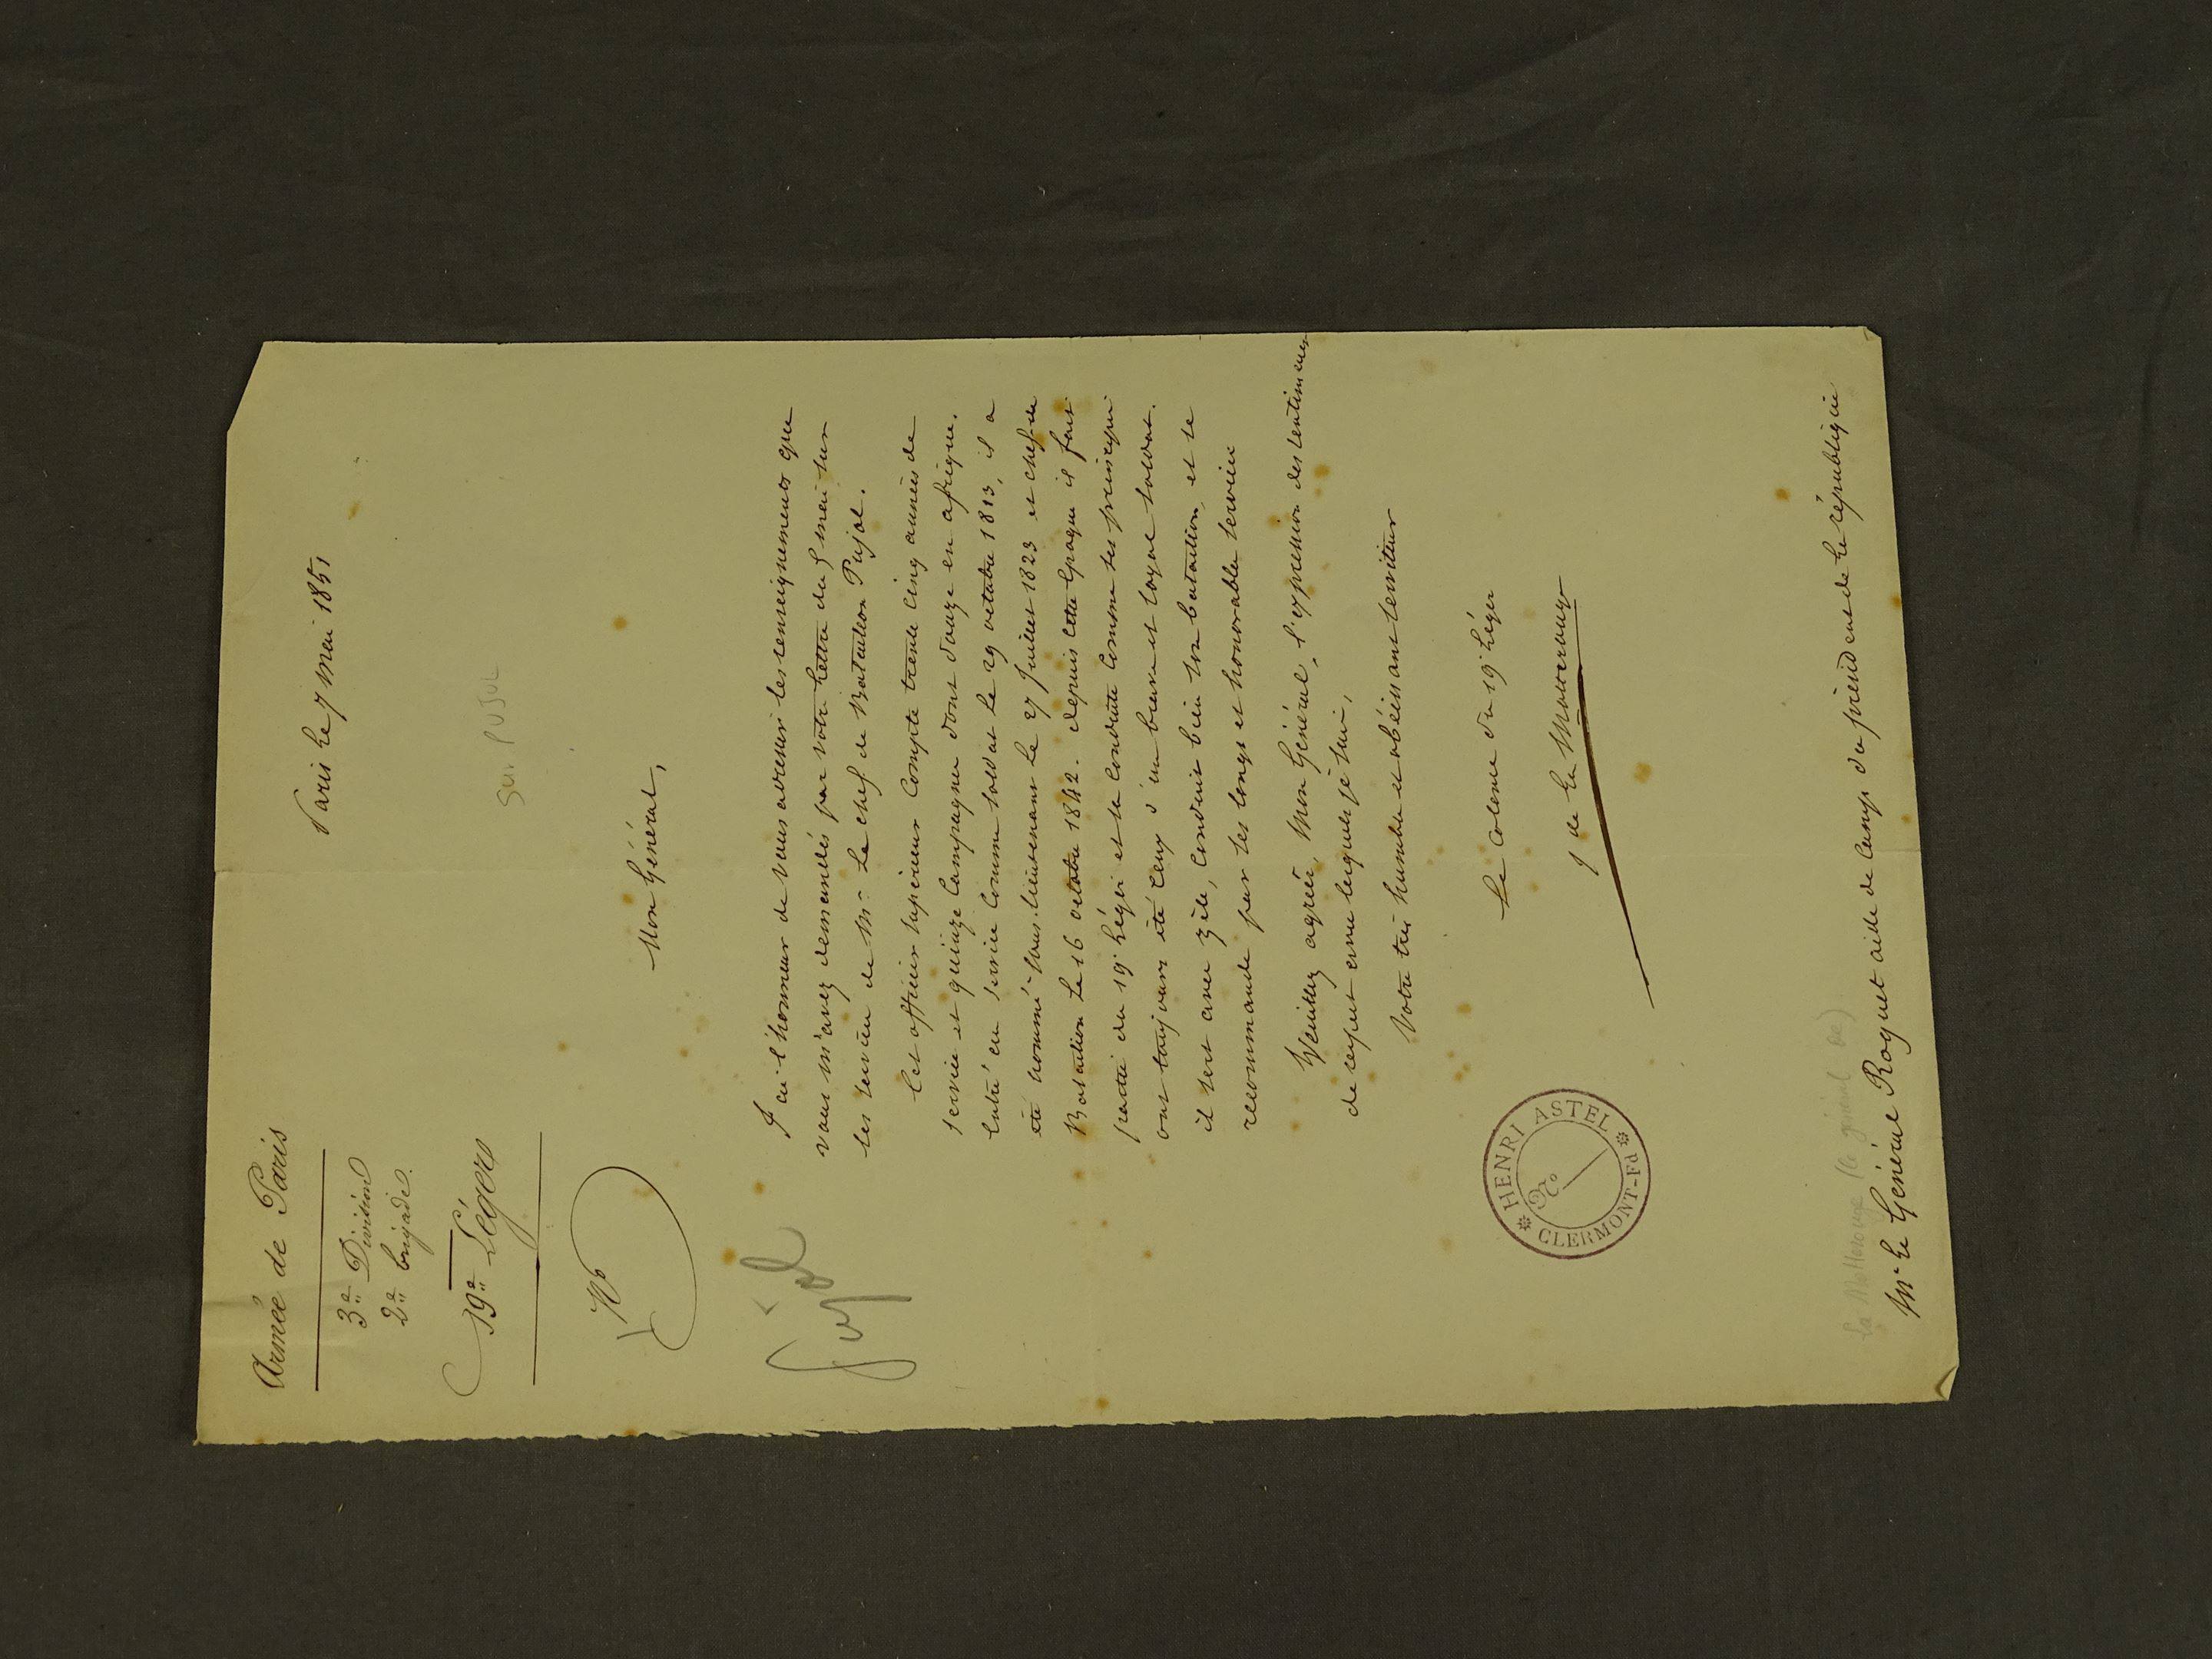 Armée de Paris
3e Division
2e brigade
19e Légers
No
Pujol
Paris le 7 mai 1851
sur PUJOL
Mon Général,
J'ai l'honneur de vous adresser les renseignements que
vous m'avez demandés par votre lettre du 5 mai sur
les services de Mr. Le chef de Bataillon Pujol.
Cet officier supérieur compte trente cinq années de
service et quinze campagnes dont douze en afrique.
entré en service comme soldat le 29 octobre 1813, il a
été nommé sous-lieutenant le 27 Juillet 1823 et chef de
Bataillon le 16 octobre 1842. depuis cette époque il fait
partie du 19e Léger et sa conduite comme ses principes
ont toujours été ceux d'un brave et loyal soldat.
il sert avec zèle, conduit bien son bataillon, et se
recommande par ses longs et honorables services
Veuillez agréer, Mon Général, l'expression des sentiments
de respect avec lesquels je suis,
Votre très humble et obéissant serviteur
Le Colonel du 19e Léger
de la Motterouge
HENRI ASTEL
CLERMONT-Fd
La Motterouge (le général de)
Mr Le Général Roguet aide de Camp du président de la république